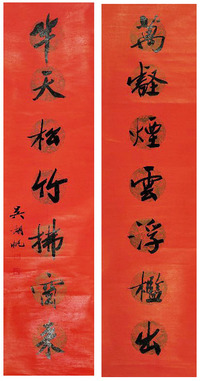 萬壑煙雲浮檻出
半天松竹拂窗來
吳湖帆